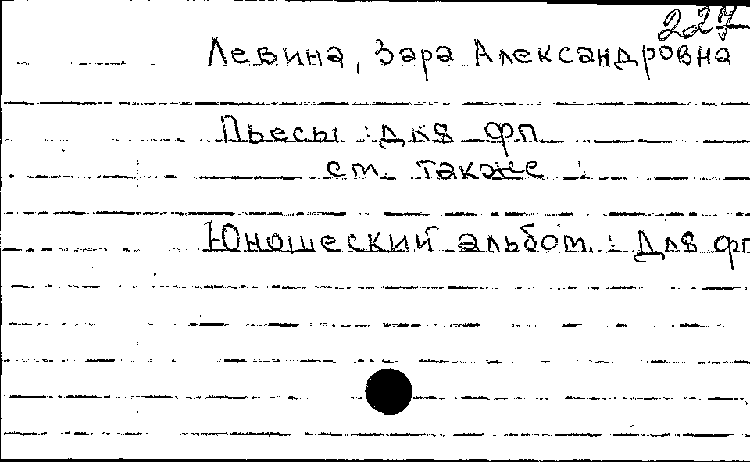 227
Левина, Зара Александровна
Пьесы : для фп
см. также :
Юношеский альбом : Для фп